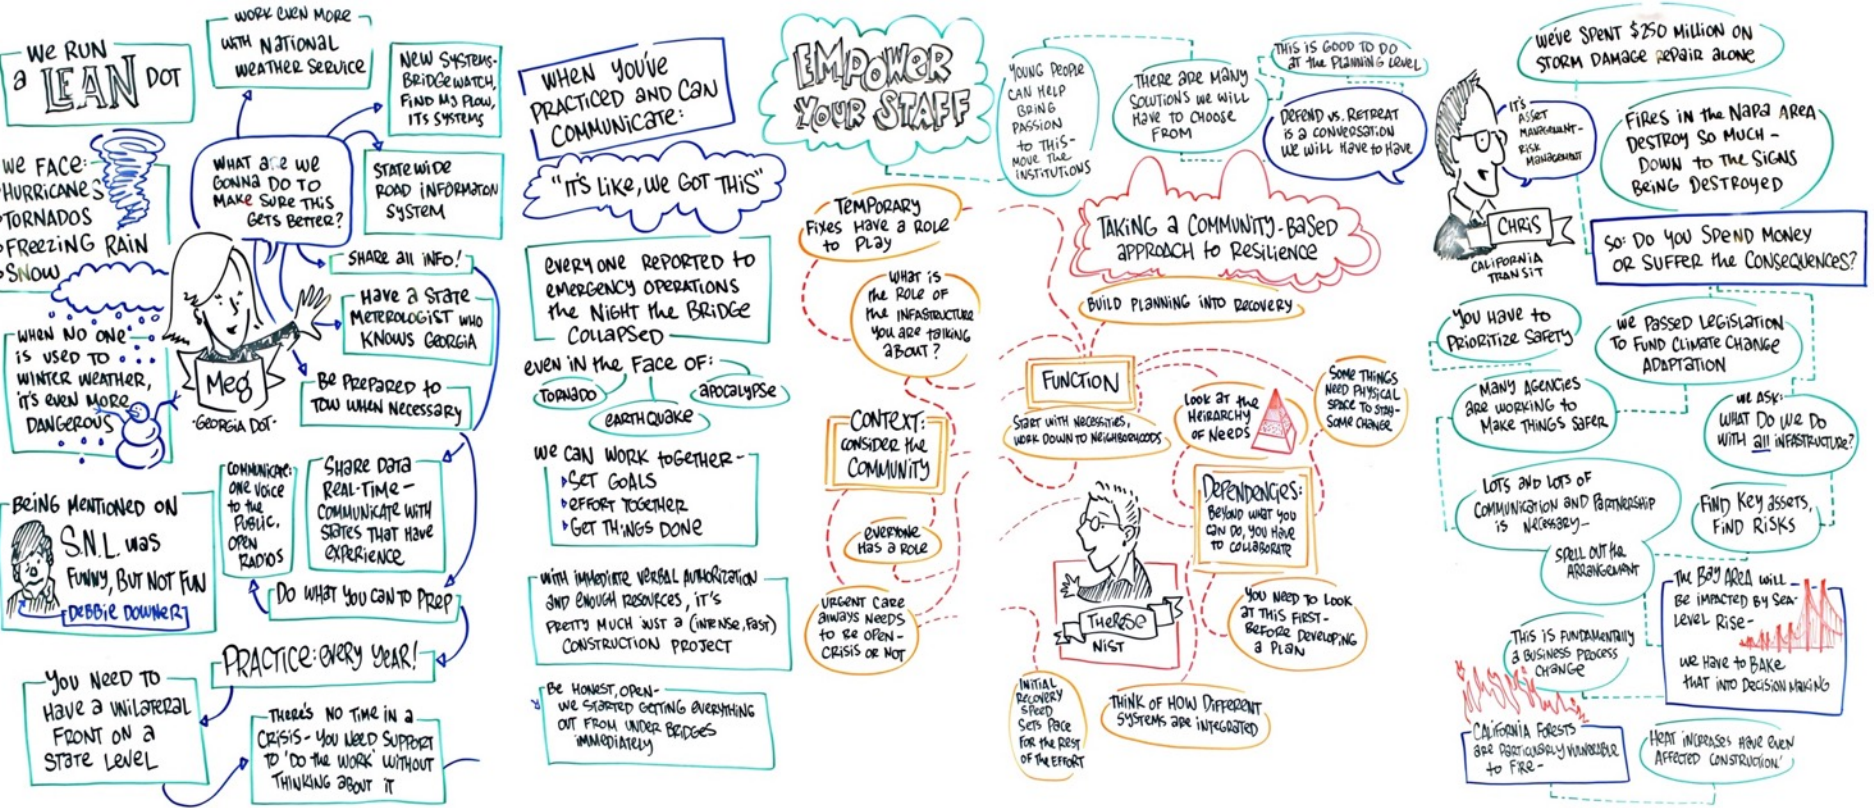 WE RUN
a LEAN DOT
WE FACE:
HURRICANES
TORNADOS
FREEZING RAIN
SNOW
WHEN NO ONE
IS USED TO
WINTER WEATHER,
IT'S EVEN MORE
DANGEROUS
BEING MENTIONED ON
S.N.L. WAS
FUNNY, BUT NOT FUN
DEBBIE DOWNER
YOU NEED TO
HAVE A UNILATERAL
FRONT ON A
STATE LEVEL
WORK EVEN MORE
WITH NATIONAL
WEATHER SERVICE
NEW SYSTEMS-
BRIDGEWATCH,
FIND MY PLOW,
ITS SYSTEMS
WHAT ARE WE
GONNA DO TO
MAKE SURE THIS
GETS BETTER?
STATEWIDE
ROAD INFORMATON
SYSTEM
SHARE all INFO!
HAVE A STATE
METEROLOGIST WHO
KNOWS GEORGIA
BE PREPARED to
TOW WHEN NECESSARY
Meg
·GEORGIA DOT·
COMMUNICATE:
ONE VOICE
to the
PUBLIC,
OPEN
RADIOS
SHARE DATA
REAL-TIME-
COMMUNICATE WITH
STATES THAT HAVE
EXPERIENCE
DO WHAT YOU CAN TO PREP
PRACTICE: EVERY YEAR!
THERE'S NO TIME IN A
CRISIS - YOU NEED SUPPORT
TO 'DO the WORK' WITHOUT
THINKING ABOUT IT
WHEN YOU'VE
PRACTICED AND CAN
COMMUNICATE:
"IT'S LIKE, WE GOT THIS"
EVERYONE REPORTED to
EMERGENCY OPERATIONS
the NIGHT the BRIDGE
COLLAPSED
even in the FACE OF:
TORNADO
EARTHQUAKE
APOCALYPSE
WE CAN WORK TOGETHER-
SET GOALS
EFFORT TOGETHER
GET THINGS DONE
WITH IMMEDIATE VERBAL AUTHORIZATION
AND ENOUGH RESOURCES, IT'S
PRETTY MUCH JUST A (INTENSE, FAST)
CONSTRUCTION PROJECT
BE HONEST, OPEN-
WE STARTED GETTING EVERYTHING
OUT FROM UNDER BRIDGES
IMMEDIATELY
EMPOWER
YOUR STAFF
TEMPORARY
FIXES HAVE A ROLE
to PLAY
WHAT IS
the ROLE OF
the INFASTRUCTURE
YOU ARE TALKING
ABOUT?
CONTEXT:
CONSIDER the
COMMUNITY
EVERYONE
HAS A ROLE
URGENT CARE
ALWAYS NEEDS
TO BE OPEN-
CRISIS OR NOT
YOUNG PEOPLE
CAN HELP
BRING
PASSION
to THIS-
MOVE The
INSTITUTIONS
THERE ARE MANY
SOLUTIONS WE WILL
HAVE TO CHOOSE
FROM
THIS IS GOOD TO DO
at the PLANNING LEVEL
DEFEND VS. RETREAT
IS A CONVERSATION
WE WILL HAVE to HAVE
TAKING A COMMUNITY-BASED
APPROACH to RESILIENCE
BUILD PLANNING INTO RECOVERY
FUNCTION
START WITH NECESSITIES,
WORK DOWN TO NEIGHBORHOODS
LOOK at the
HEIRARCHY
OF NEEDS
SOME THINGS
NEED PHYSICAL
SPACE TO STAY-
SOME CHANGE
DEPENDENCIES:
BEYOND WHAT YOU
CAN DO, YOU HAVE
TO COLLABORATE
THERESE
NIST
YOU NEED TO LOOK
AT THIS FIRST-
BEFORE DEVELOPING
A PLAN
INITIAL
RECOVERY
SPEED
SETS PACE
FOR the REST
OF the EFFORT
THINK OF HOW DIFFERENT
SYSTEMS ARE INTEGRATED
WE'VE SPENT $250 MILLION ON
STORM DAMAGE REPAIR ALONE
IT'S
ASSET
MANAGEMENT-
RISK
MANAGEMENT
FIRES IN the NAPA AREA
DESTROY SO MUCH-
DOWN to the SIGNS
BEING DESTROYED
CHRIS
CALIFORNIA
TRANSIT
SO: DO YOU SPEND MONEY
OR SUFFER the CONSEQUENCES?
YOU HAVE to
PRIORITIZE SAFETY
WE PASSED LEGISLATION
TO FUND CLIMATE CHANGE
ADAPTATION
MANY AGENCIES
ARE WORKING to
MAKE THINGS SAFER
WE ASK:
WHAT DO WE DO
WITH all INFASTRUCTURE?
LOTS AND LOTS OF
COMMUNICATION AND PARTNERSHIP
IS NECESSARY-
SPELL OUT the
ARRANGEMENT
FIND KEY ASSETS,
FIND RISKS
THIS IS FUNDAMENTALLY
A BUSINESS PROCESS
CHANGE
THE BAY AREA WILL
BE IMPACTED BY SEA-
LEVEL RISE-
WE HAVE to BAKE
THAT INTO DECISION MAKING
CALIFORNIA FORESTS
ARE PARTICULARLY VULNERABLE
to FIRE-
HEAT INCREASES HAVE EVEN
AFFECTED CONSTRUCTION